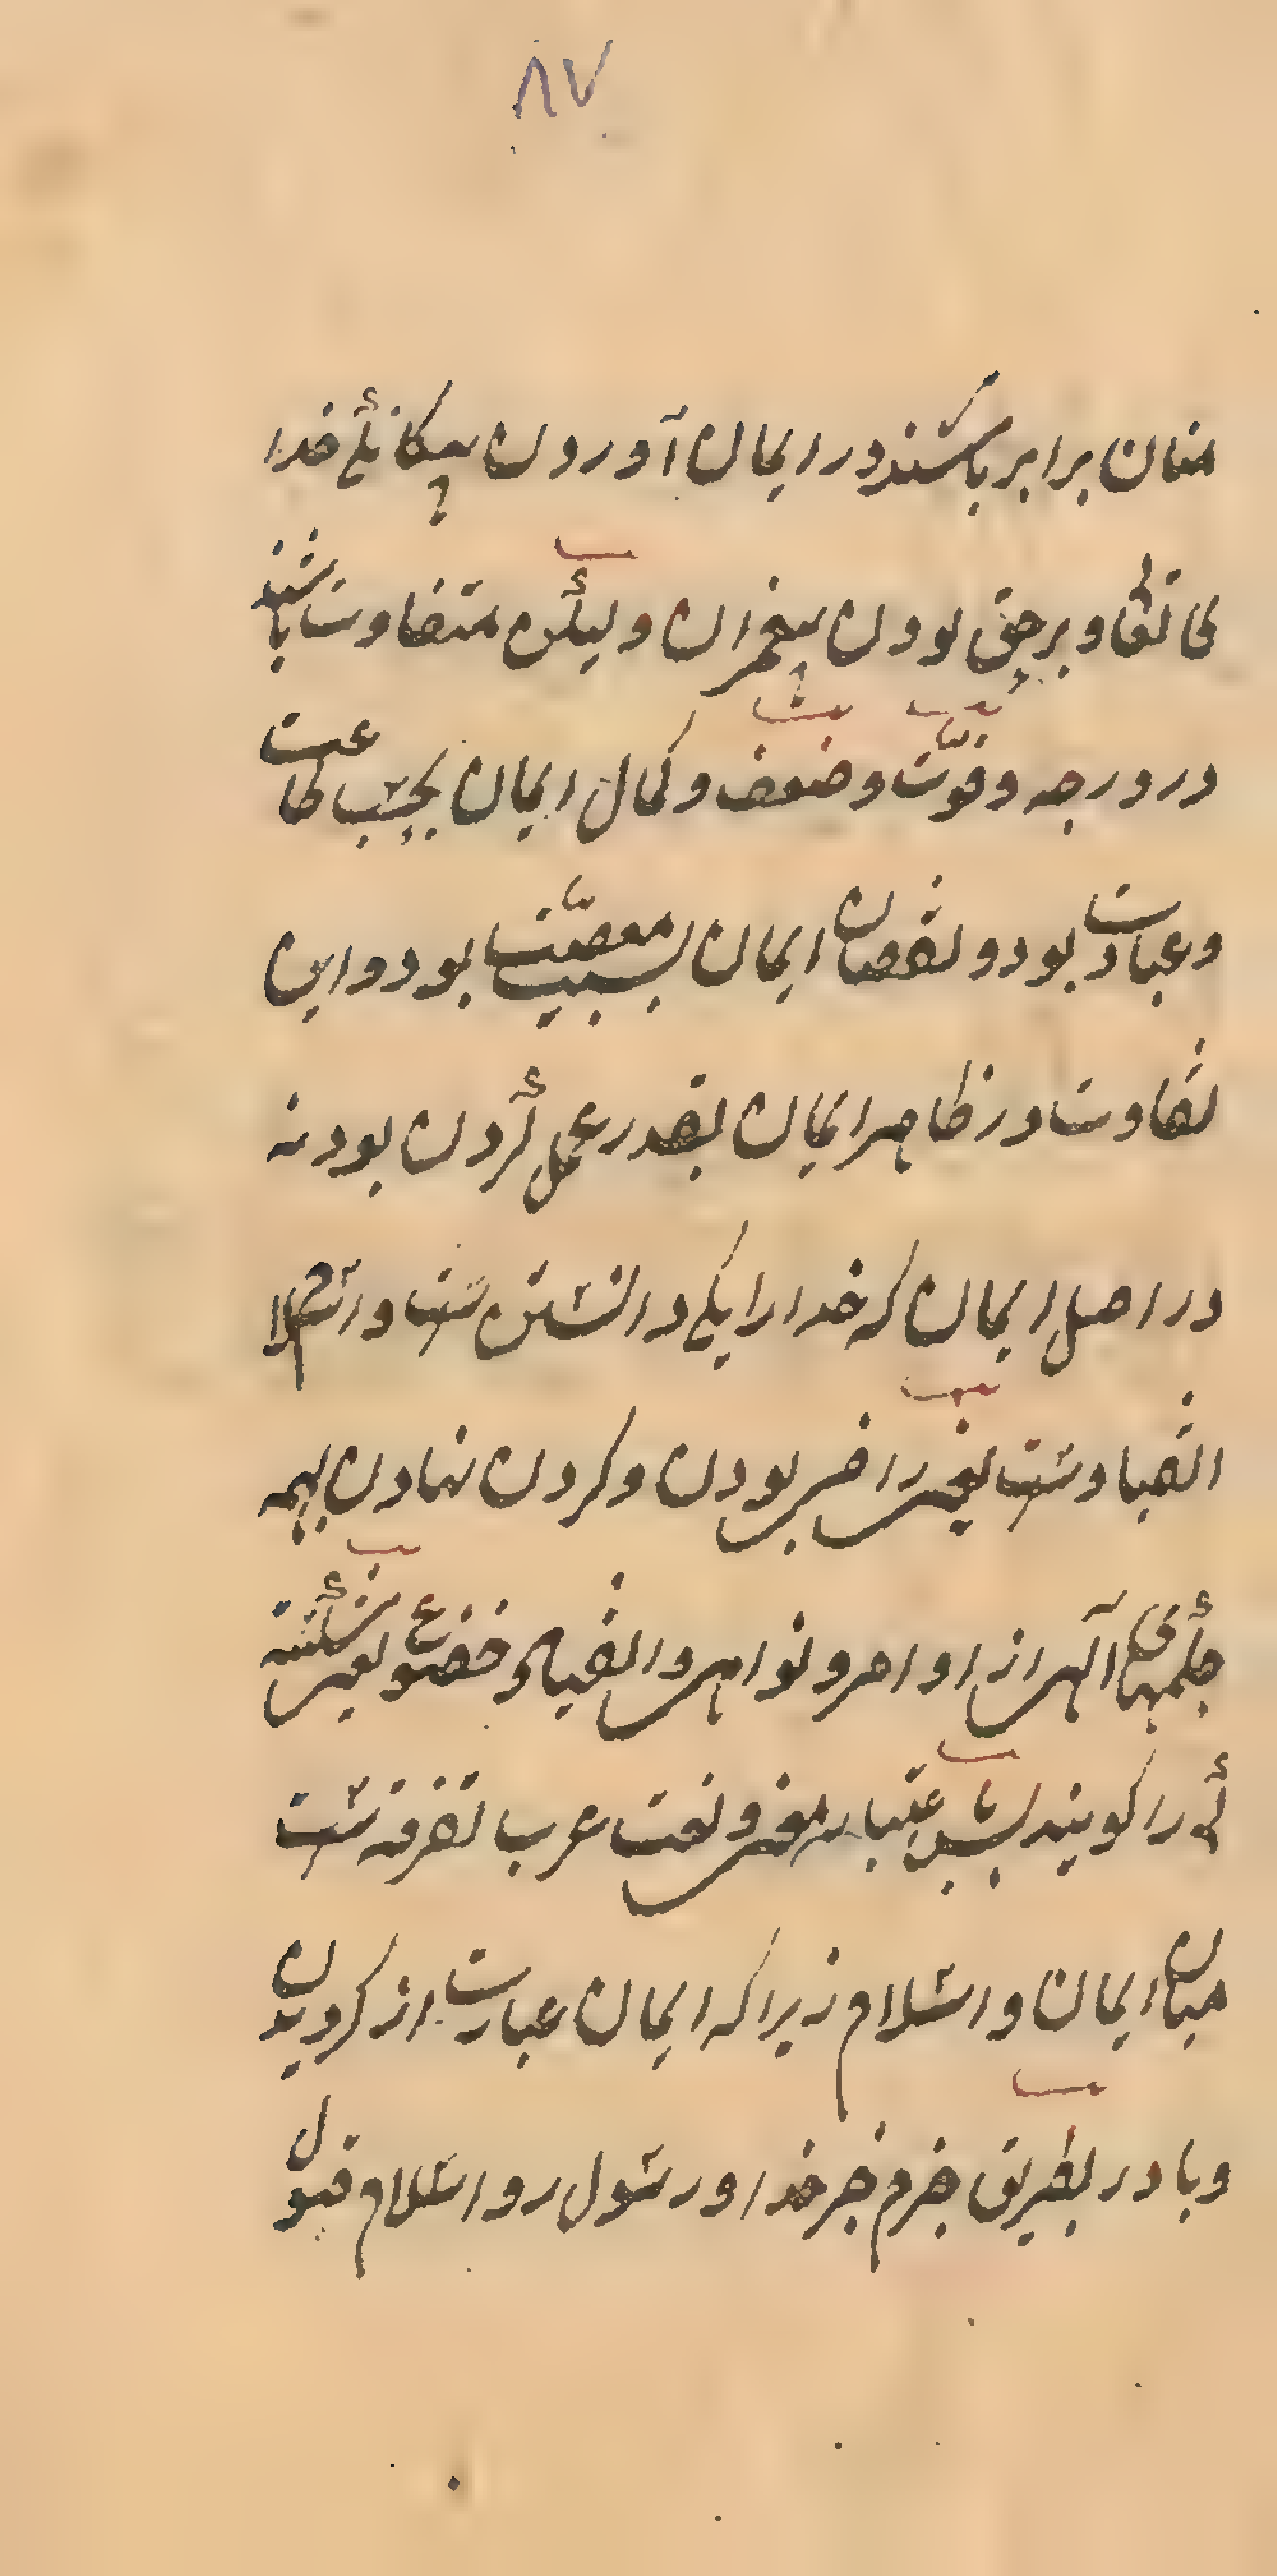 ٨٧
منان برابر باشند در ایمان آوردن بیکانکئ خدا
تعالی و برحق بودن پیغمبران ولیکن متفاوت باشند
در درجه و قوّت و ضعف و کمال ایمان بحسب طاعت
و عبادت بود و نقصان ایمان بسبب معصیّت بود و این
تفاوت در ظاهر ایمان بقدر عمل کردن بود نه
در اصل ایمان که خدا را یکی دانستن ست و اسلام
انقیاد ست یعنی راضی بودن و کردن نهادن بهمه
حکمهای آلهی از اوامر و نواهی و انقیاد و خضوع یعنی شکسته
کی را کویند بس باعتبار معنی و لغت عرب تفرقه ست
میان ایمان و اسلام زیرا که ایمان عبارت از کرویدن
و باور بطریق جزم خبر خدا و رسول را و اسلام قبول